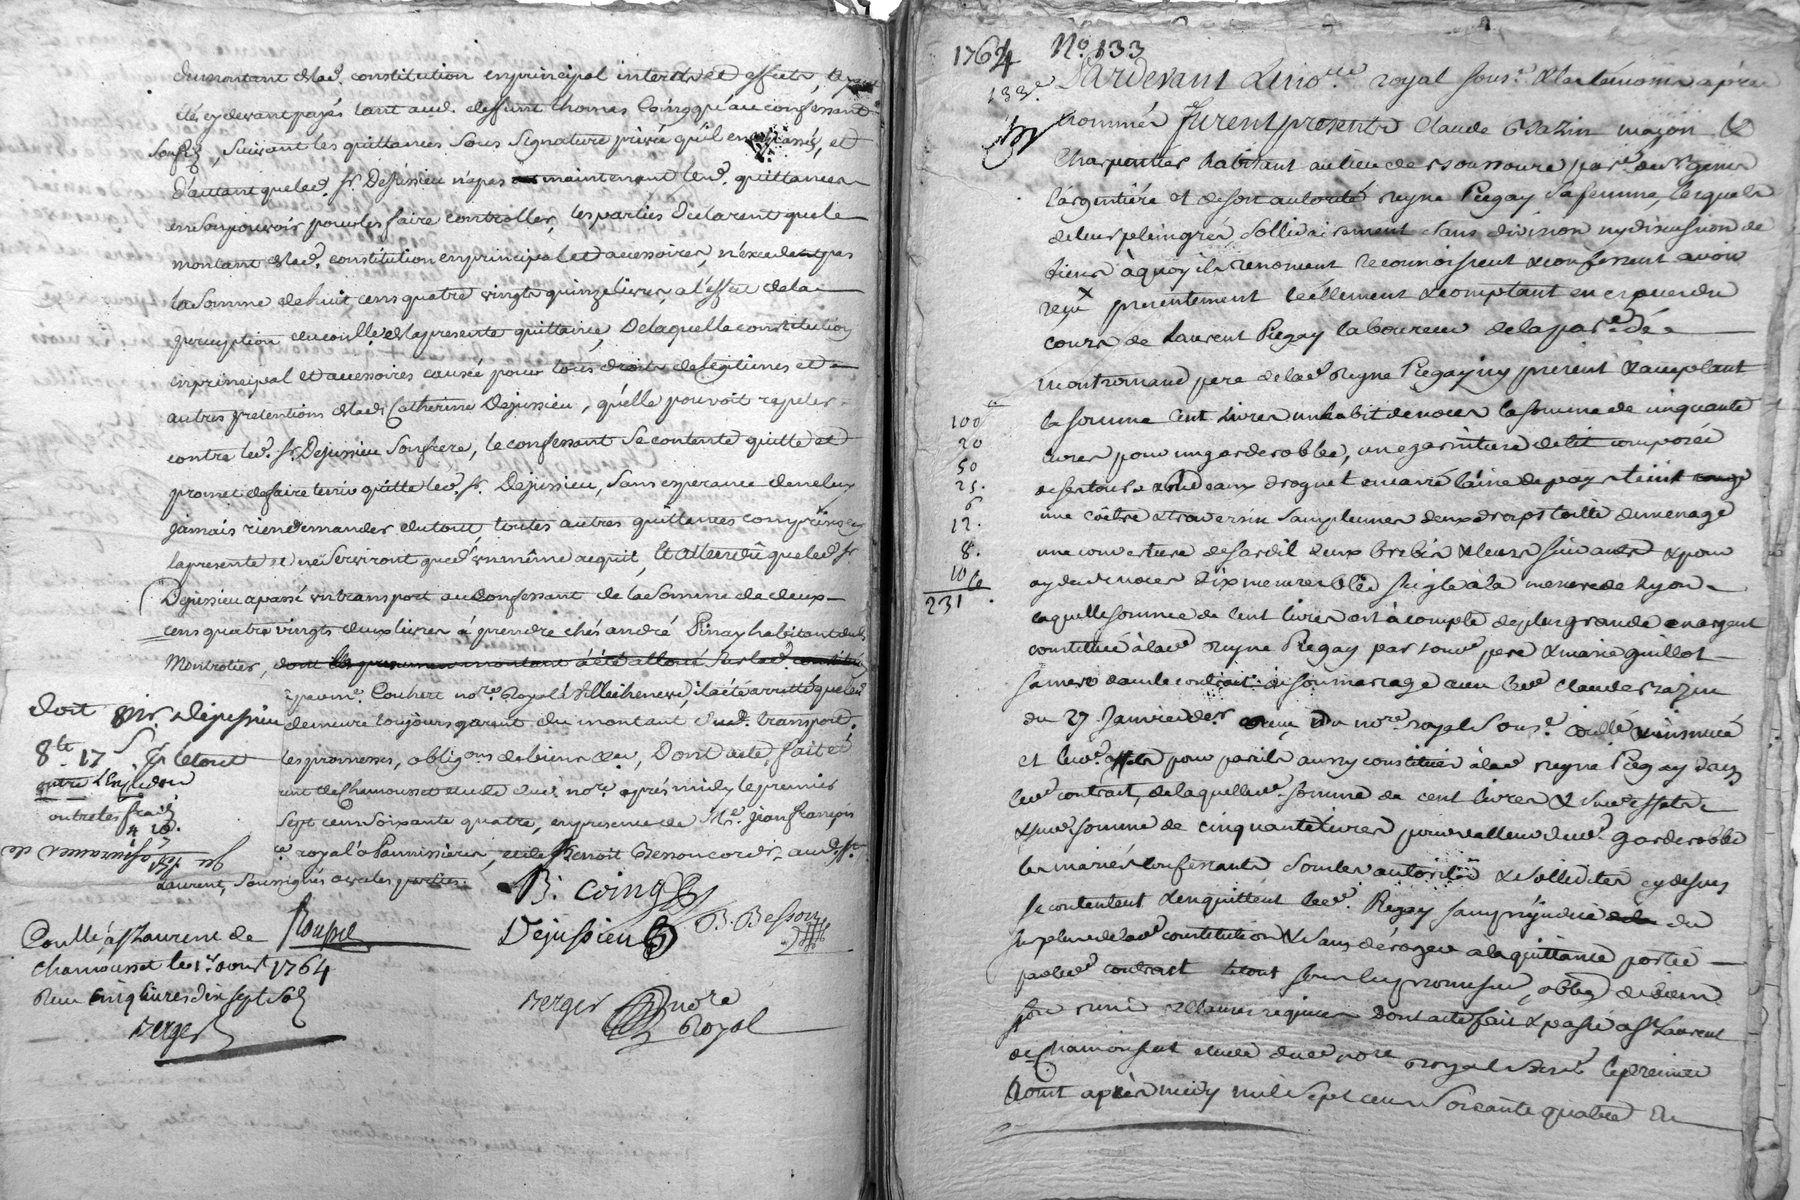 du montant de lad. constitution en principal interets et effets, ayant
étés cy devant payés tant aud. deffunt thomas Coing qu'au confessant
son fils, suivant les quittances sous signature privée qu'il en a passés, et
d'autant que led. sr. Dejussieu n'a pas maintenant lesd. quittances
en son pouvoir pour les faire controller, les parties déclarent que le
montant de lad. constitution en principal et accessoires, n'éxcedent pas
la somme de huit cens quatre vingts quinze livres, a l'effet de la
perception du coulle. de la presente quittance, De laquelle constitution
en principal et accessoires causée pour tous droits de legitimes et
autres pretentions de lad. Catherine Dejussieu, qu'elle pouvoit repeter
contre led. sr. Dejussieu son frere, le confessant se contente quitte et
promet de faire tenir quitte led. sr. Dejussieu, sans esperance de ne luy
jamais rien demander du tout, toutes autres quittances comprises en
la presente et ne serviront que d'un même acquit, Et attendu que led. sr
Dejussieu a passé un transport au confessant de la somme de deux
cens quatre vingts deux livres à prendre chés andré Pinay habitant dud.
Montrotier, dont
par me. Couhert nore. Royal à Villechenève, il a été arretté que led.
demeure toujours garent du montant dud. transport.
les promesses, obligons de biens &c., Dont acte, fait et
rent de Chamousset etude dud. nore. après midy le premier
sept cens soixante quatre, en presence de Me. jean françois
re. royal à Pannissieres, et de Benoit Besson cordr. aud. st.
Laurent, soussignés avec les parties.
Doit Mr. Dejussieu
8 lt. 17 s.
outre les frais
4 10.
B. Coing
Dejussieu
B. Besson
Coullé à st Laurent de
Chamousset le 1er. aoust 1764
Reçu cinq livres dix sept sols
Berger
Berger nore
Royal
1764 No. 133
133e.
Pardevant Le no.re royal sous.é & les témoins après
nommés furent presents Claude Bazin maçon &
charpentier habitant au lieu de
l'argentiére et de son autorité reyne Pregay sa femme, lesquels
de leurs plein gré sollidairement sans division ny discussion de
biens à quoy ils renoncent reconnoissent & confessent avoir
reçu presentement reéllement & comptant en especes du
cours de Laurent Pregay laboureur de la parse. de
montromand pere de lad. Reyne Pregay icy present & acceptant
100
20
50
25.
6
12.
8.
10
231.
la somme cent livres un habit de noces la somme de cinquante
livres pour un garderobbe, une garniture de lit composée
de ses tours & rideaux droguet en carré laine de pays teint
une coëtre & traversin sans plumes deux draps toille de menage
une couverture de sardil deux brebis & leurs suivants & pour
ayde de noces dix mesures blé seigle à la mesure de Lyon
laquelle somme de cent livres est à compte de plus grande en argent
constituée à lad. reyne Pregay par sond. pere & marie guillot
sa mere dans le contrait de son mariage avec led. Claude Bazin
du 27 Janvier der. reçu du nore. royal sous.é coullé & insinué
et lesd. effets pour pareils aussy constitués à lad. reyne Pregay dans
led. contrait, de laquelle somme de cent livres & desd. effets
& susd. somme de cinquante livres pour valleur dud. garderobbe
les mariés confessants sous les autorités & solliditer cy dessus
se contentent & en quittent led. Pregay sans prejudice du
surplus de lad. constitution & sans déroger a la quittance portée
par led. contrait le tout sous les promesses, oblig. de biens
renonc. & clauses requises Dont acte fait & passé a st Laurent
de Chamousset etude dud. nore royal sous.é le premier
Aoust après midy mil sept cens soixante quatre En